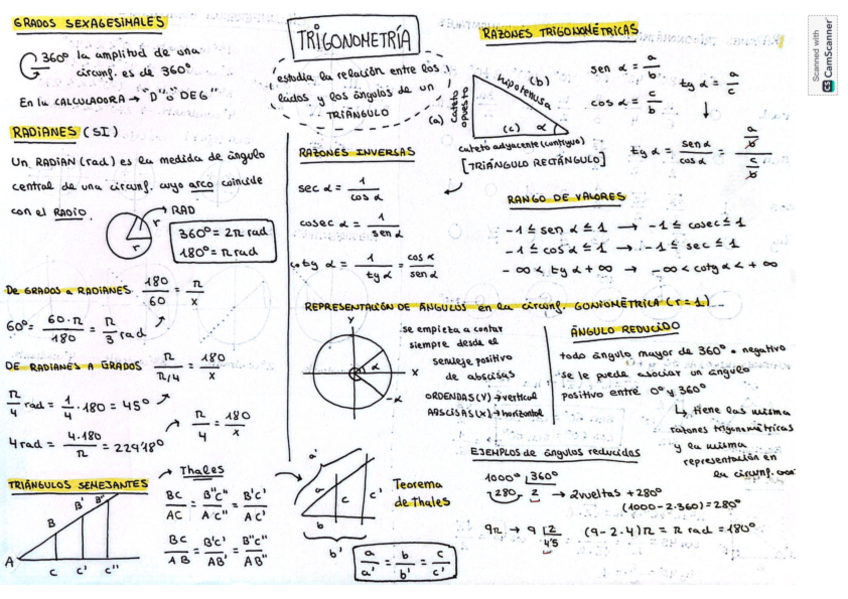 GRADOS SEXAGESIMALES
360º la amplitud de una
circunf. es de 360º
En la CALCULADORA → "D" o "DEG"
RADIANES (SI)
Un RADIÁN (rad) es la medida de ángulo
central de una circunf. cuyo arco coincide
con el RADIO.
RAD
r
r
360º = 2π rad
180º = π rad
DE GRADOS A RADIANES 180/60 = π/x
60º = 60·π/180 = π/3 rad
DE RADIANES A GRADOS π/π/4 = 180/x
π/4 rad = 1/4 · 180 = 45º
π/4 = 180/x
4 rad = 4·180/π = 229'18º
TRIÁNGULOS SEMEJANTES
→ Thales
A B B' B" C C' C"
BC/AC = B"C"/A·C" = B'C'/AC'
BC/AB = B'C'/AB' = B"C"/AB"
TRIGONOMETRÍA
estudia la relación entre los
lados y los ángulos de un
TRIÁNGULO
RAZONES INVERSAS
sec α = 1/cos α
cosec α = 1/sen α
cotg α = 1/tg α = cos α/sen α
RAZONES TRIGONOMÉTRICAS
hipotenusa (b)
(a) cateto opuesto
(c) α
cateto adyacente (contiguo)
[TRIÁNGULO RECTÁNGULO]
sen α = a/b
cos α = c/b
tg α = a/c
tg α = sen α/cos α = a/b / c/b
RANGO DE VALORES
-1 ≤ sen α ≤ 1 → -1 ≤ cosec ≤ 1
-1 ≤ cos α ≤ 1 → -1 ≤ sec ≤ 1
-∞ < tg α + ∞ → -∞ < cotg α < + ∞
REPRESENTACIÓN DE ÁNGULOS en la circunf. GONIOMÉTRICA (r = 1)
Y
X
α
-α
se empieza a contar
siempre desde el
semieje positivo
de abscisas
ORDENDAS (Y) → vertical
ABSCISAS (X) → horizontal
ÁNGULO REDUCIDO
todo ángulo mayor de 360º o negativo
se le puede asociar un ángulo
positivo entre 0º y 360º
↳ tiene las misma
razones trigonométricas
y la misma
representación en
la circunf.
a'
a
c
c'
b
b'
Teorema
de Thales
a/a' = b/b' = c/c'
EJEMPLOS de ángulos reducidos
1000º 360º
280 2 → 2 vueltas + 280º
(1000 - 2·360) = 280º
9π → 9 2
4'5
(9 - 2·4)π = π rad = 180º
Scanned with
CS CamScanner